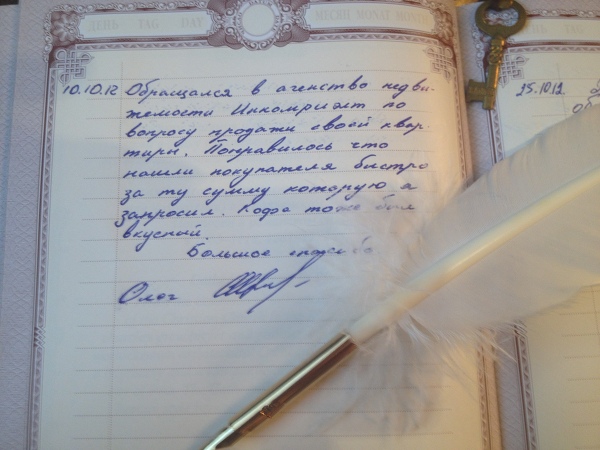 ДЕНЬ TAG DAY
МЕСЯЦ MONAT MONTH
10.10.12 Обращался в агенство недви-
жемости Инкомриэлт по
вопросу продажи своей квар-
тиры. Понравилось что
нашли покупателя быстро
за ту сумму которую я
запросил. Кофе тоже был
вкусный.
Большое спасибо
Олег
25.10.12